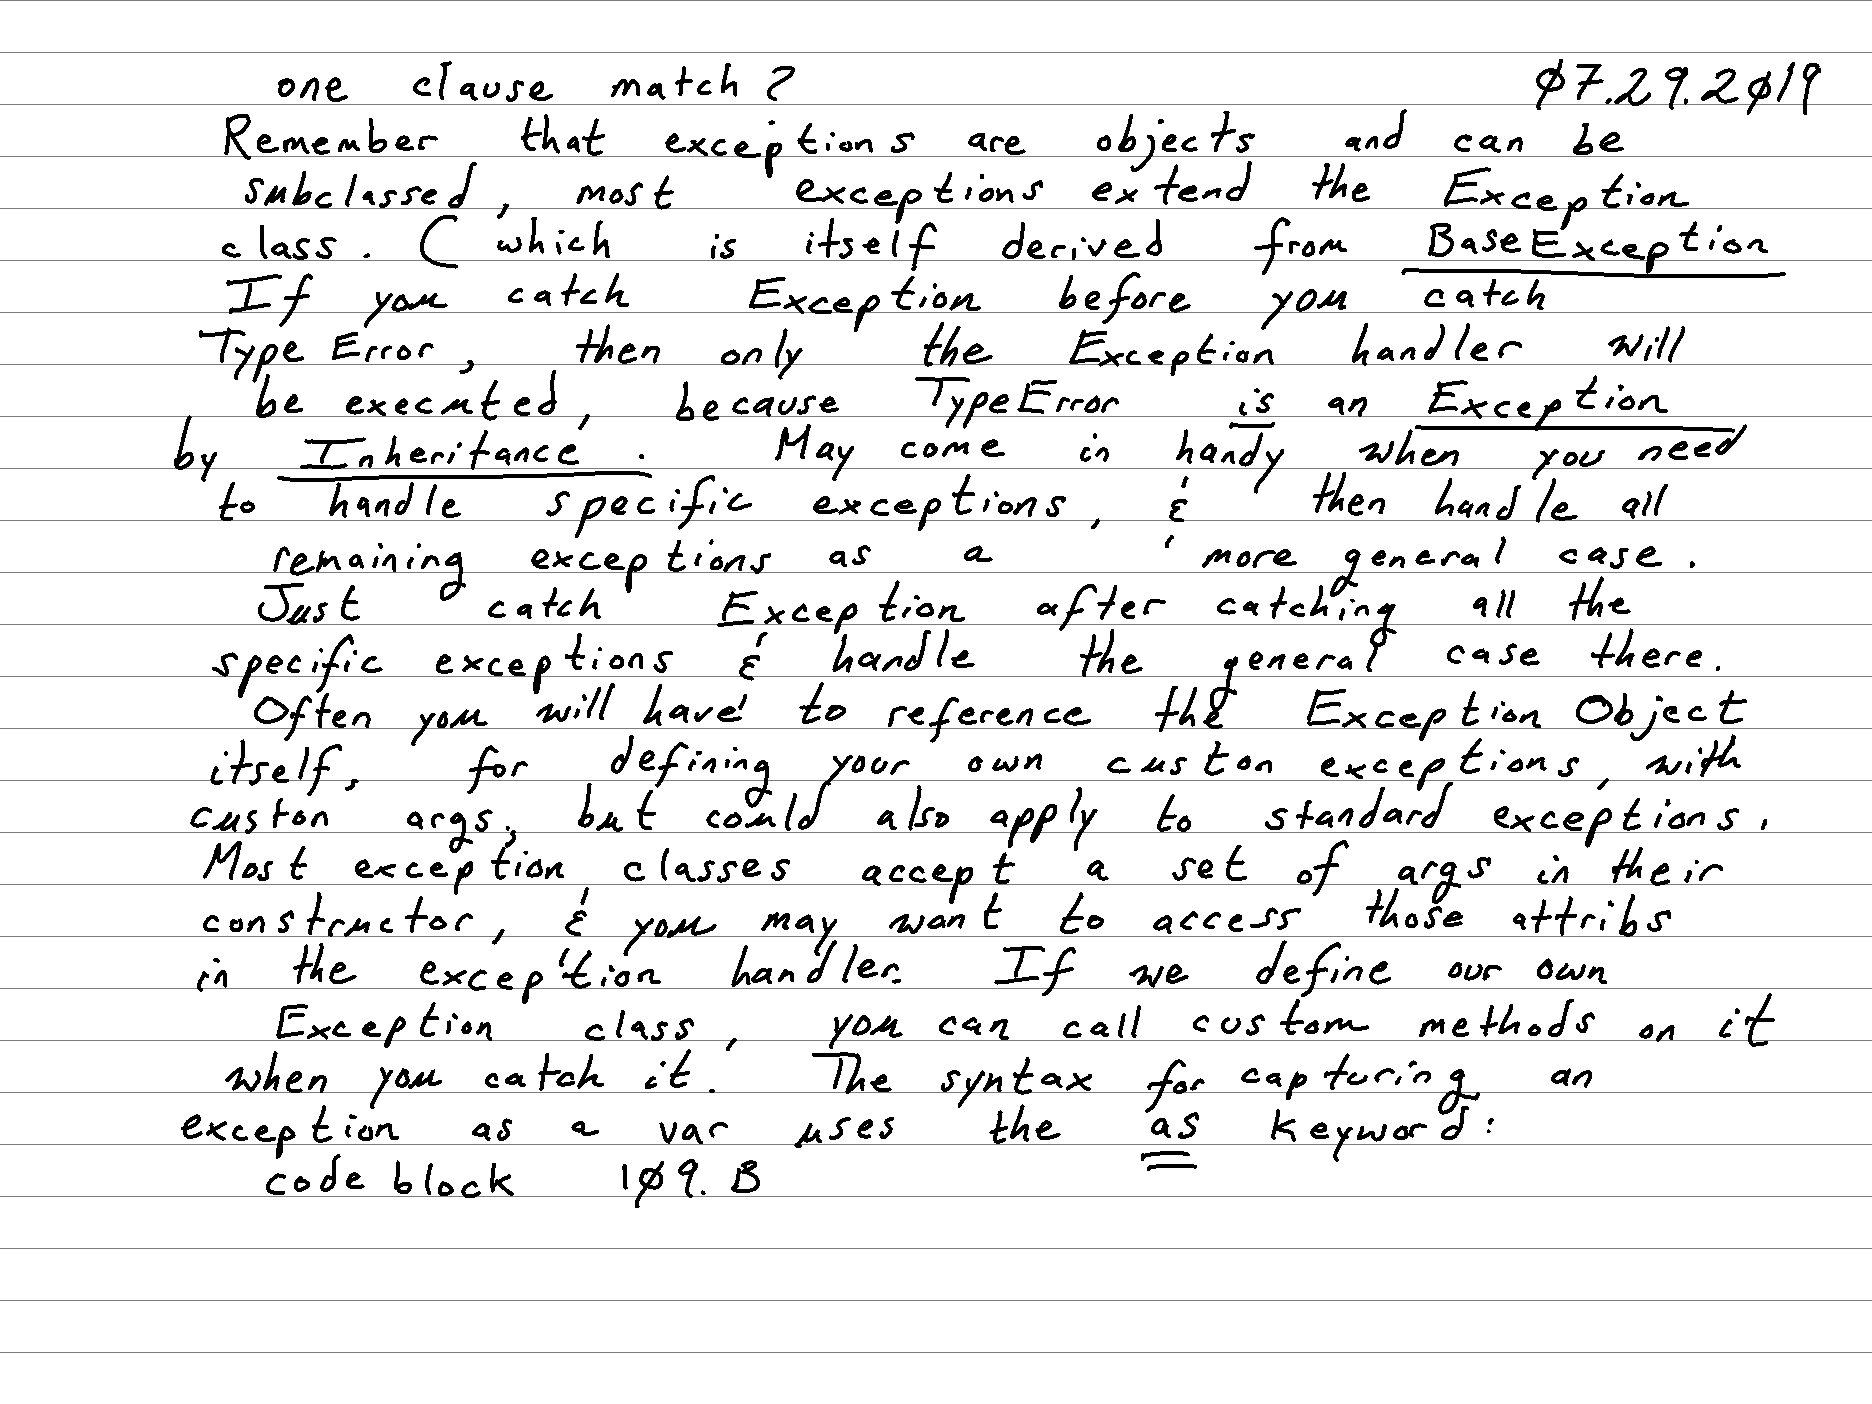 one clause match? 07.29.2019
Remember that exceptions are objects and can be
subclassed, most exceptions extend the Exception
class. (which is itself derived from BaseException
If you catch Exception before you catch
TypeError, then only the Exception handler will
be executed, because TypeError is an Exception
by Inheritance. May come in handy when you need
to handle specific exceptions, & then handle all
remaining exceptions as a more general case.
Just catch Exception after catching all the
specific exceptions & handle the general case there.
Often you will have to reference the Exception Object
itself, for defining your own custon exceptions, with
custon args, but could also apply to standard exceptions.
Most exception classes accept a set of args in their
constructor, & you may want to access those attribs
in the exception handler. If we define our own
Exception class, you can call custom methods on it
when you catch it. The syntax for capturing an
exception as a var uses the as keyword:
code block 109.B